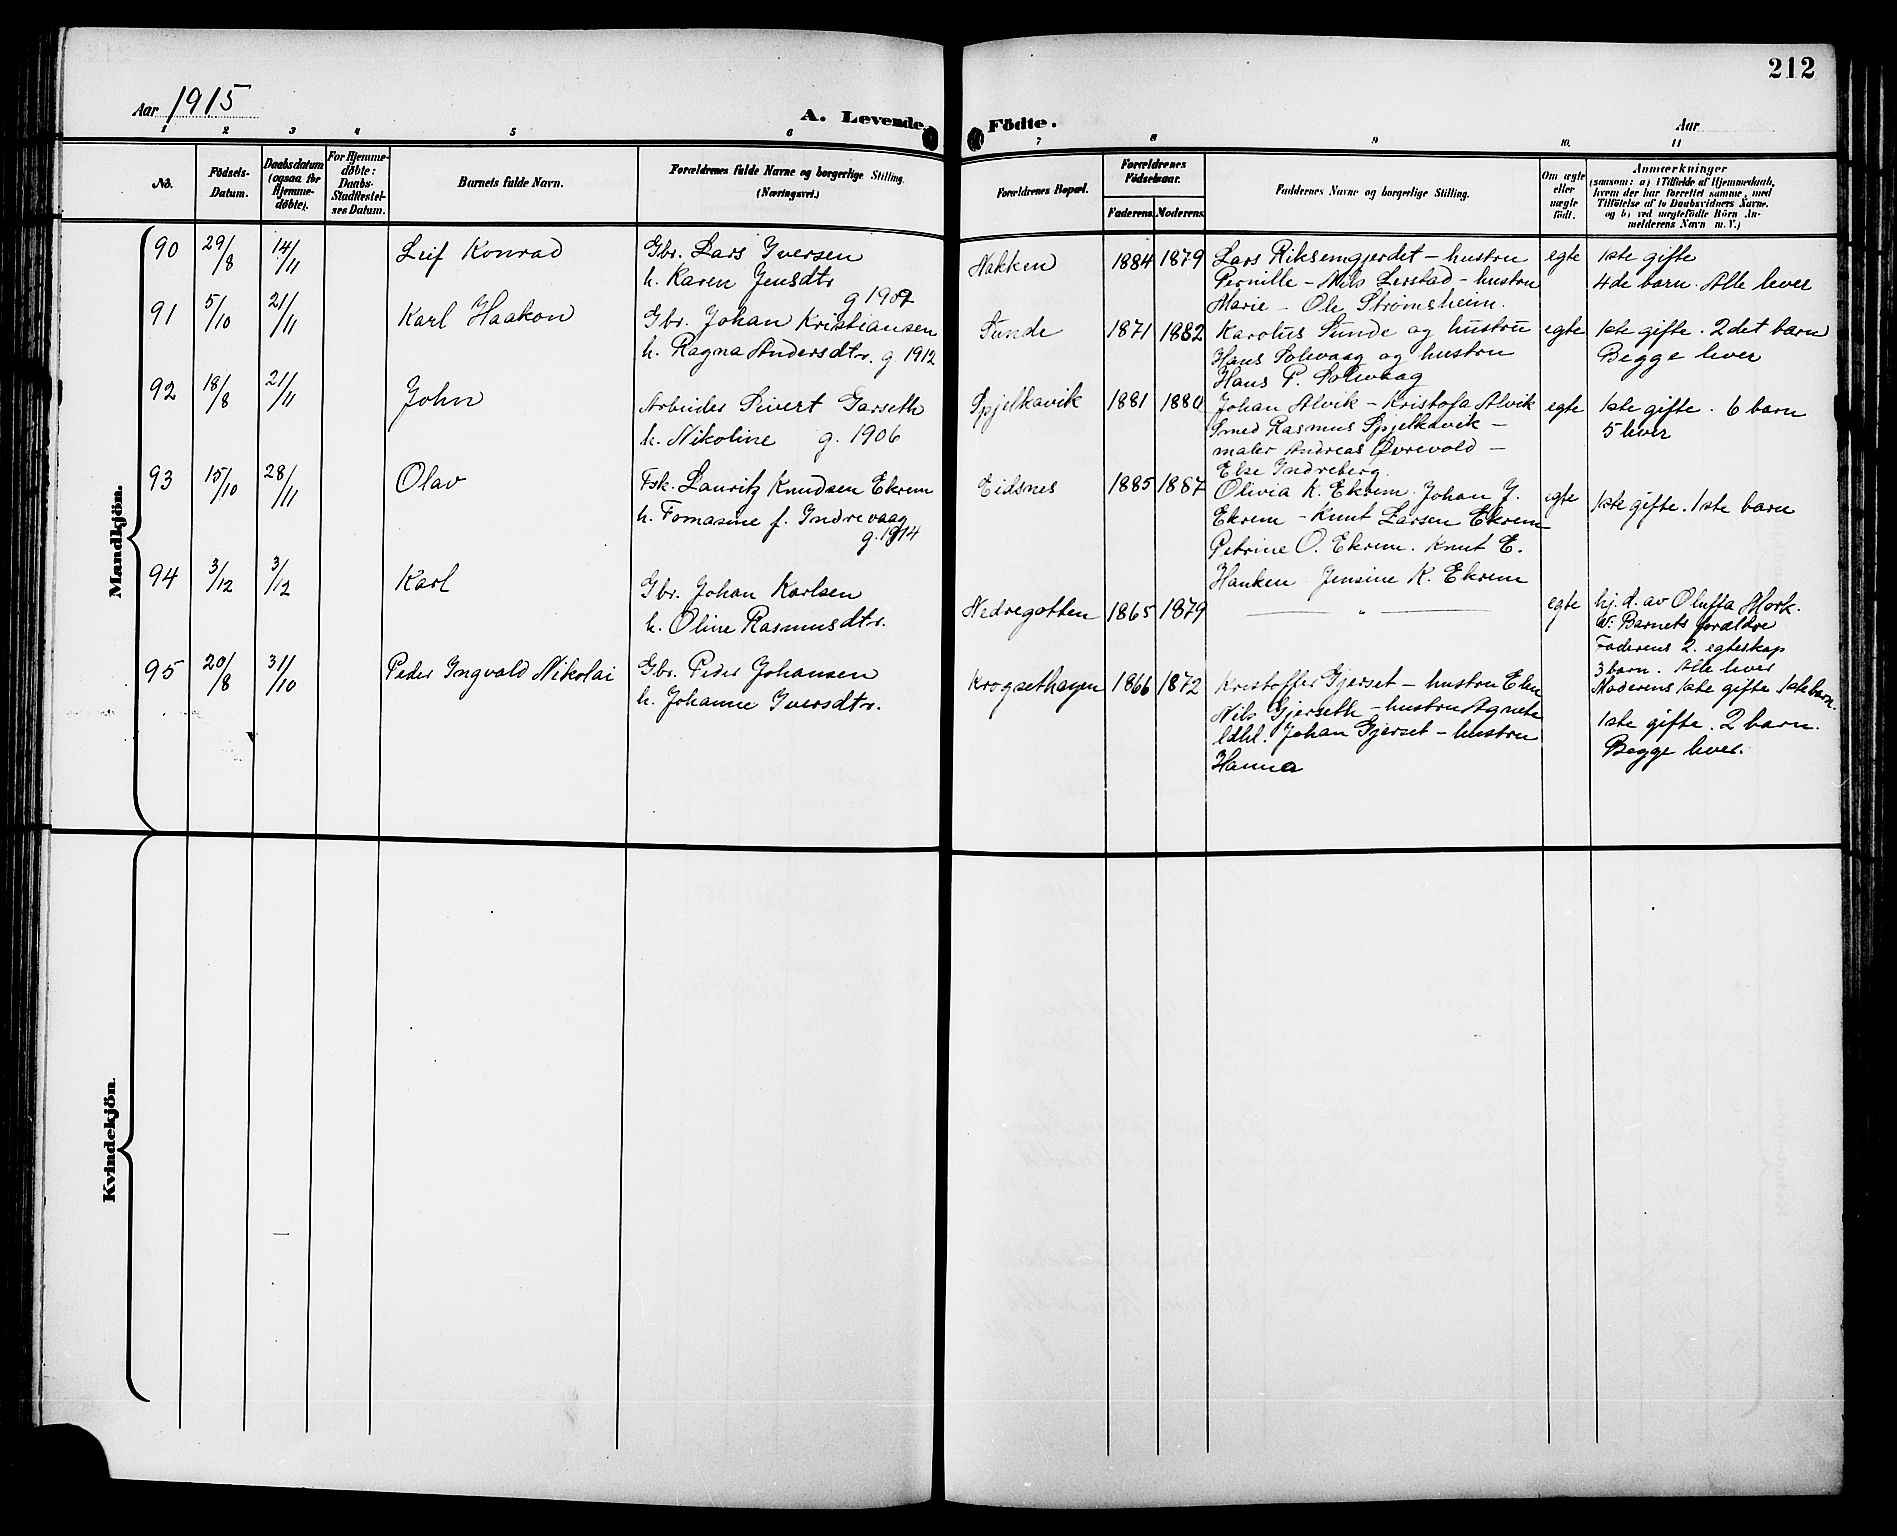 212
Aar 1915
A. Levende Födte.
Aar
1 2 3 4 5 6 7 8 9 10. 11
No.
Födsels-Datum.
Daabsdatum (ogsaa for Hjemme-døbte).
For Hjemme-døbte: Daabs-Stadfæstel-ses Datum.
Barnets fulde Navn.
Forældrenes fulde Navne og borgerlige Stilling. (Næringsvei.)
Forældrenes Bopæl.
Forældrenes Födselsaar.
Faderens. Moderens.
Faddernes Navne og borgerlige Stilling.
Om ægte eller uægte født.
Anmærkninger
(saasom: a) i Tilfælde af Hjemmedaab, hvem der har forrettet samme, med Tilföielse af to Daabsvidners Navne. og b) ved uægtefödte Börn An-melderens Navn m. V.)
Mandkjön.
90 29/8 14/11 Leif Konrad
Gbr. Lars Iversen
h. Karen Jensdtr
g 1907
Hakken 1884 1879
Lars Riksemgjerdet – hustru
Pernille – Nils Lerstad – hustru
Marie – Ole Strømsheim.
egte
1ste gifte
4de barn. Alle lever
91 5/10 21/11 Karl Haakon
Gbr. Johan Kristiansen
h. Ragna Andersdtr. g 1912
Sunde 1871 1882
Karolus Sunde og hustru
Hans Solevaag og hustru
Hans P. Solevaag
egte
1ste gifte. 2det barn
Begge lever
92 18/8 21/11 John
Arbeider Sivert Garseth
h. Nikoline g. 1906
Spjelkavik 1881 1880
Johan Alvik – Kristofa Alvik
Smed Rasmus Spjelkavik –
maler Andreas Øvrevold –
Else Indreberg.
egte
1ste gifte. 6 barn
5 lever
93 15/10 28/11 Olav
Fsk. Lauritz Knudsen Ekrem
h. Tomasine f. Indrevaag
g. 1914
Eidsnes 1885 1887
Olivia K. Ekrem. Johan J.
Ekrem – Knut Larsen Ekrem
Petrine O. Ekrem. Knut E.
Hanken. Jensine K. Ekrem
egte
1ste gifte. 1ste barn
94 3/12 3/12 Karl
Gbr. Johan Karlsen
h. Oline Rasmusdtr.
Nedregotten 1865 1879
— „ —
egte
hj. d. av Oluffa Mork.
V: Barnets forældre
Faderens 2. egteskap
3 barn. Alle lever
Moderens 1ste gifte 1ste barn.
95 20/8 31/10 Peder Ingvald Nikolai
Gbr. Peder Johansen
h. Johanne Iversdtr.
Krogsethagen 1866 1872
Kristoffer Gjerset – hustru Elen
Nils Gjerseth – hustru Agnete
Johan Gjerset – hustru
Hanna
1ste gifte. 2 barn.
Begge lever.
Kvindekjön.